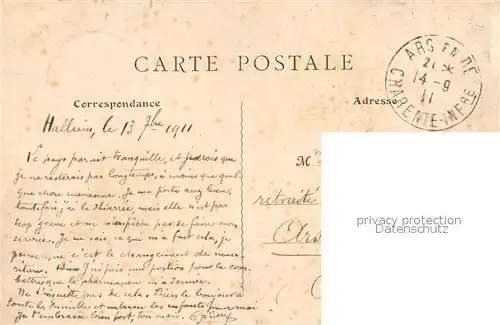 CARTE POSTALE
ARS EN RÉ
21 *
14 - 9
11
CHARENTE-INFRE
Correspondance
Adresse
Halluin, le 13 7bre 1911
Le pays parait tranquille, et je crois que
je ne resterais pas longtemps, à moins que quel-
que chose survienne. Je me porte assez bien,
toutefois j'ai la diarrée, mais elle n'est pas
trop grave et ne m'empêche pas de faire mon
service. Je ne sais ce qui m'a fait cela, je
pense que c'est le changement de nour-
riture. J'ai pris une potion pour la com-
battre que le pharmacien m'a donnée.
Ne t'inquiette pas de cela. Bien le bonjour à
toute la famille et embrasse les enfants pour moi
Je t'embrasse bien fort, ton mari.
M
retraité
Ars
privacy protection
watermark